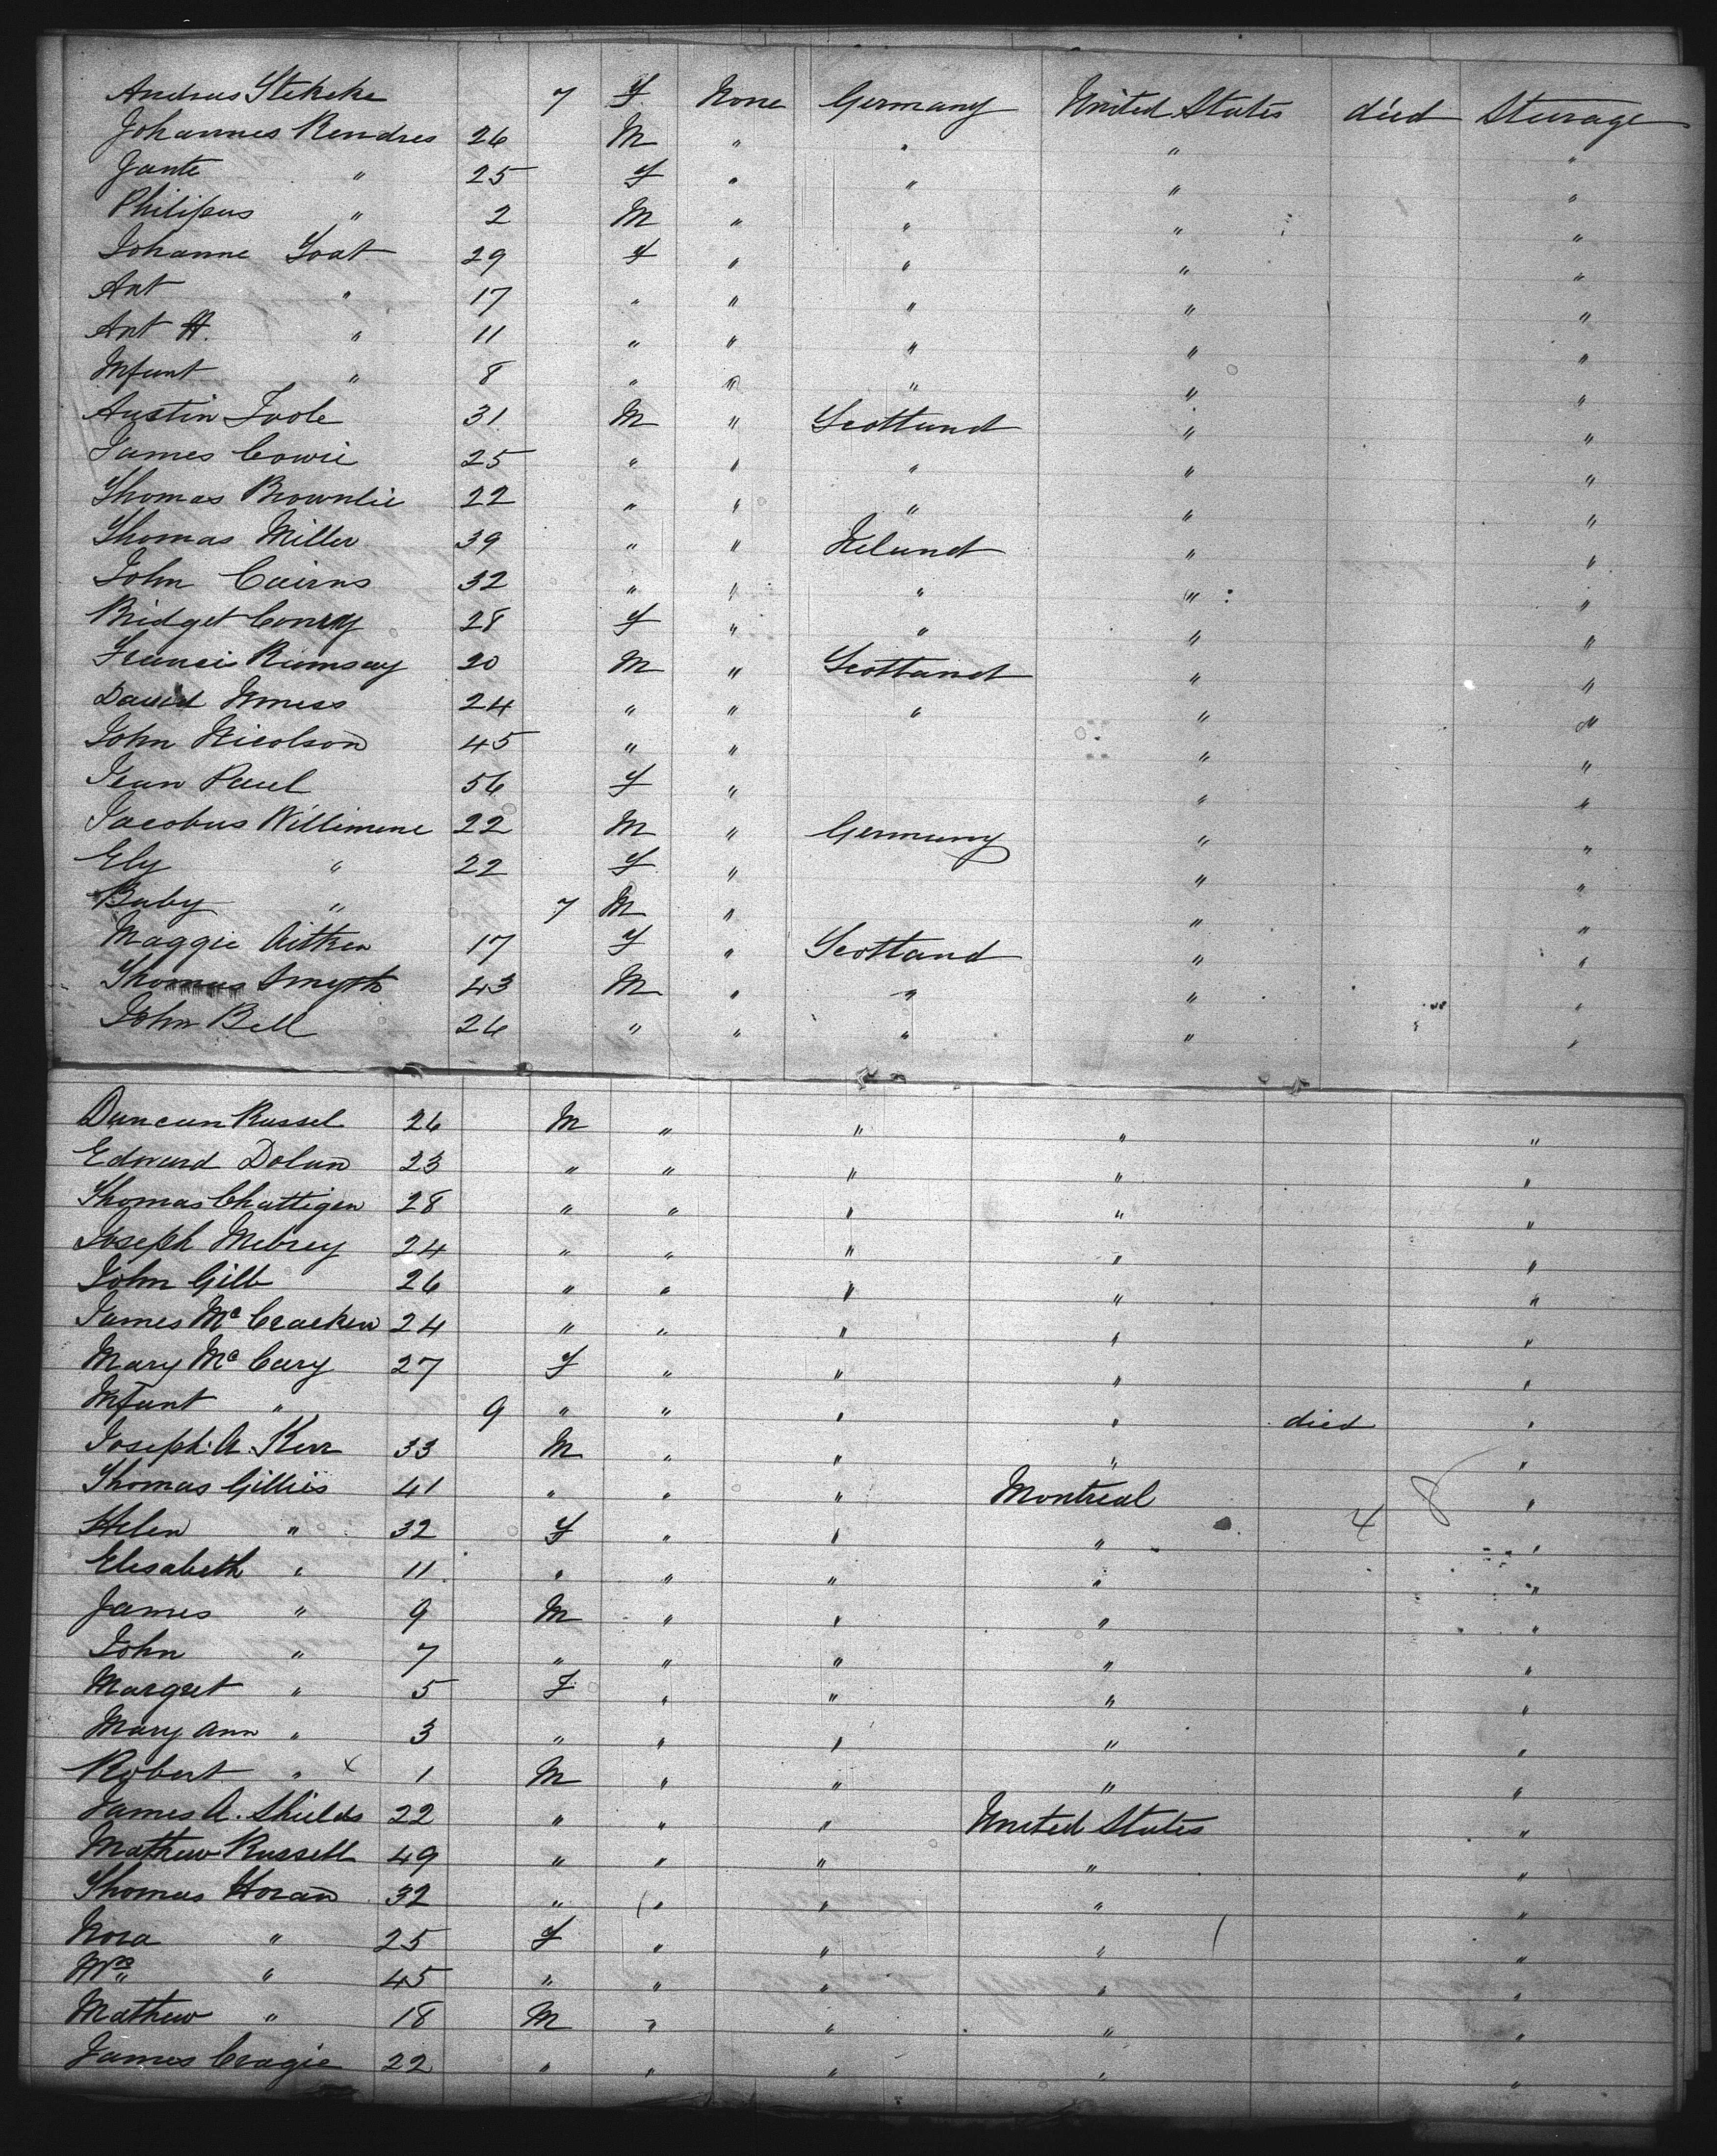 Andrus Stekeke 7 F None Germany United States died Steerage
Johannes Rendres 26 M " " " "
Jante " 25 F " " " "
Philipus " 2 M " " " "
Johanne Goat 29 F " " " "
Ant " 17 " " " " "
Ant H. " 11 " " " " "
Infant " 8 " " " " "
Austin Toole 31 M " Scotland " "
James Cowie 25 " " " " "
Thomas Brownlie 22 " " " " "
Thomas Miller 39 " " Ireland " "
John Cairns 32 " " " " "
Bidget Conry 28 F " " " "
Francis Ramsay 20 M " Scotland " "
David Inness 24 " " " " "
John Nicolson 45 " " " "
Jean Paul 56 F " " "
Jacobus Willimene 22 M " Germany " "
Ely " 22 F " " "
Baby " 7 M " " "
Maggie Aitken 17 F " Scotland " "
Thomas Smyth 43 M " " " "
John Bell 26 " " " " "
Duncan Russel 26 M " " " "
Edward Dolan 23 " " " " "
Thomas Chattigen 28 " " " " "
Joseph Mebrey 24 " " " " "
John Gilb 26 " " " " "
James Mc Cracken 24 " " " " "
Mary Mc Cary 27 F " " " "
Infant " 9 " " " " died "
Joseph A. Kerr 33 M " " " "
Thomas Gillies 41 " " " Montreal "
Helen " 32 F " " " 4 8 "
Elisabeth " 11 " " " " "
James " 9 M " " " "
John " 7 " " " " "
Margret " 5 F " " " "
Mary Ann " 3 " " " " "
Robert " x 1 M " " " "
James A. Shields 22 " " " United States "
Mathew Russell 49 " " " " "
Thomas Horan 32 " " " " "
Nora " 25 F " " " "
Mrs " 45 " " " " "
Mathew " 18 M " " " "
James Cragie 22 " " " " "